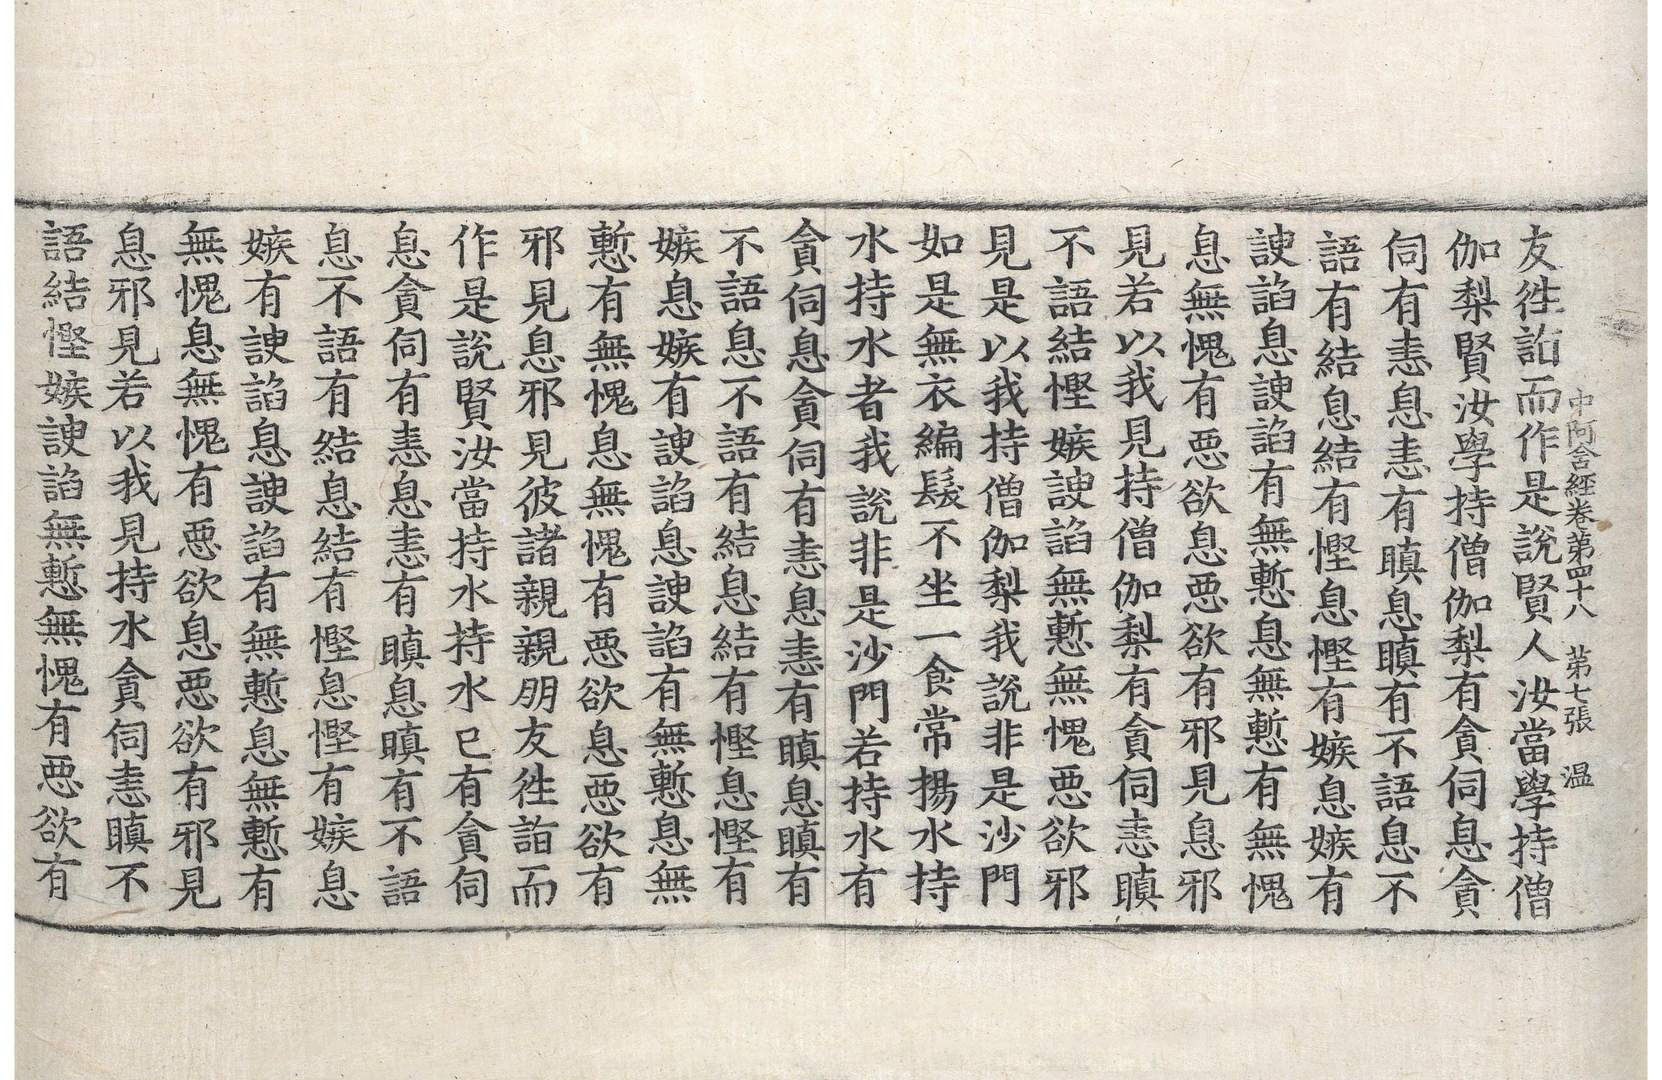 中阿含經卷第四十八 第七張 温
友徃詣而作是說賢人汝當學持僧
伽梨賢汝學持僧伽梨有貪伺息貪
伺有恚息恚有瞋息瞋有不語息不
語有結息結有慳息慳有嫉息嫉有
諛諂息諛諂有無慙息無慙有無愧
息無愧有悪欲息悪欲有邪見息邪
見若以我見持僧伽梨有貪伺恚瞋
不語結慳嫉諛諂無慙無愧悪欲邪
見是以我持僧伽梨我說非是沙門
如是無衣編髮不坐一食常揚水持
水持水者我說非是沙門若持水有
貪伺息貪伺有恚息恚有瞋息瞋有
不語息不語有結息結有慳息慳有
嫉息嫉有諛諂息諛諂有無慙息無
慙有無愧息無愧有悪欲息悪欲有
邪見息邪見彼諸親親朋友徃詣而
作是說賢汝當持水持水已有貪伺
息貪伺有恚息恚有瞋息瞋有不語
息不語有結息結有慳息慳有嫉息
嫉有諛諂息諛諂有無慙息無慙有
無愧息無愧有悪欲息悪欲有邪見
息邪見若以我見持水貪伺恚瞋不
語結慳嫉諛諂無慙無愧有悪欲有